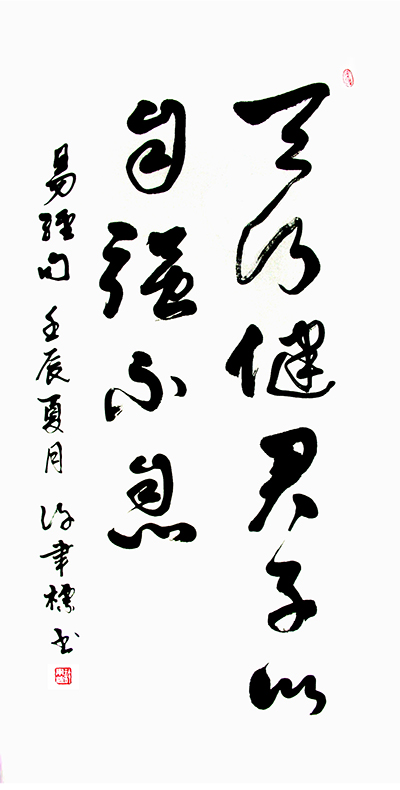 天行健君子以
自强不息
易經句 壬辰夏月 许聿標书